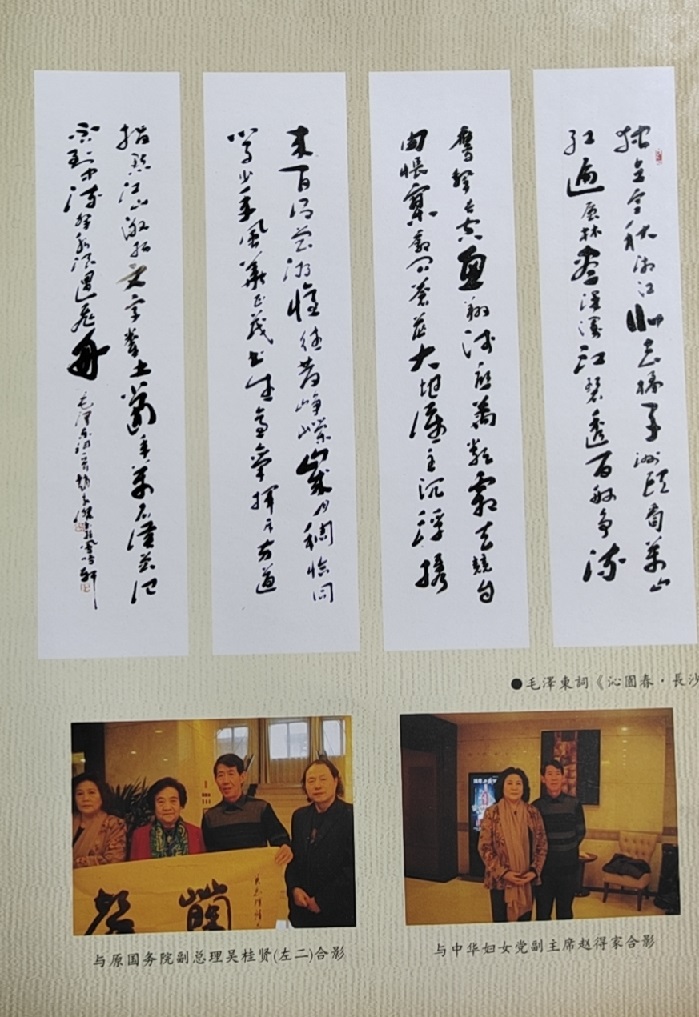 独立寒秋湘江北去橘子洲頭看萬山
红遍层林尽染漫江碧透百舸争流
鹰击长空鱼翔浅底萬类霜天競自
由怅寥廓问苍茫大地谁主沉浮携
来百侣曾游忆往昔峥嵘岁月稠恰同
学少年风华正茂书生意气挥斥方遒
指点江山激扬文字粪土當年萬户侯曾记
否到中流击水浪遏飞舟
毛泽东词
●毛澤東詞《沁園春·長沙
与原国务院副总理吴桂贤(左二)合影
与中华妇女党副主席赵得家合影